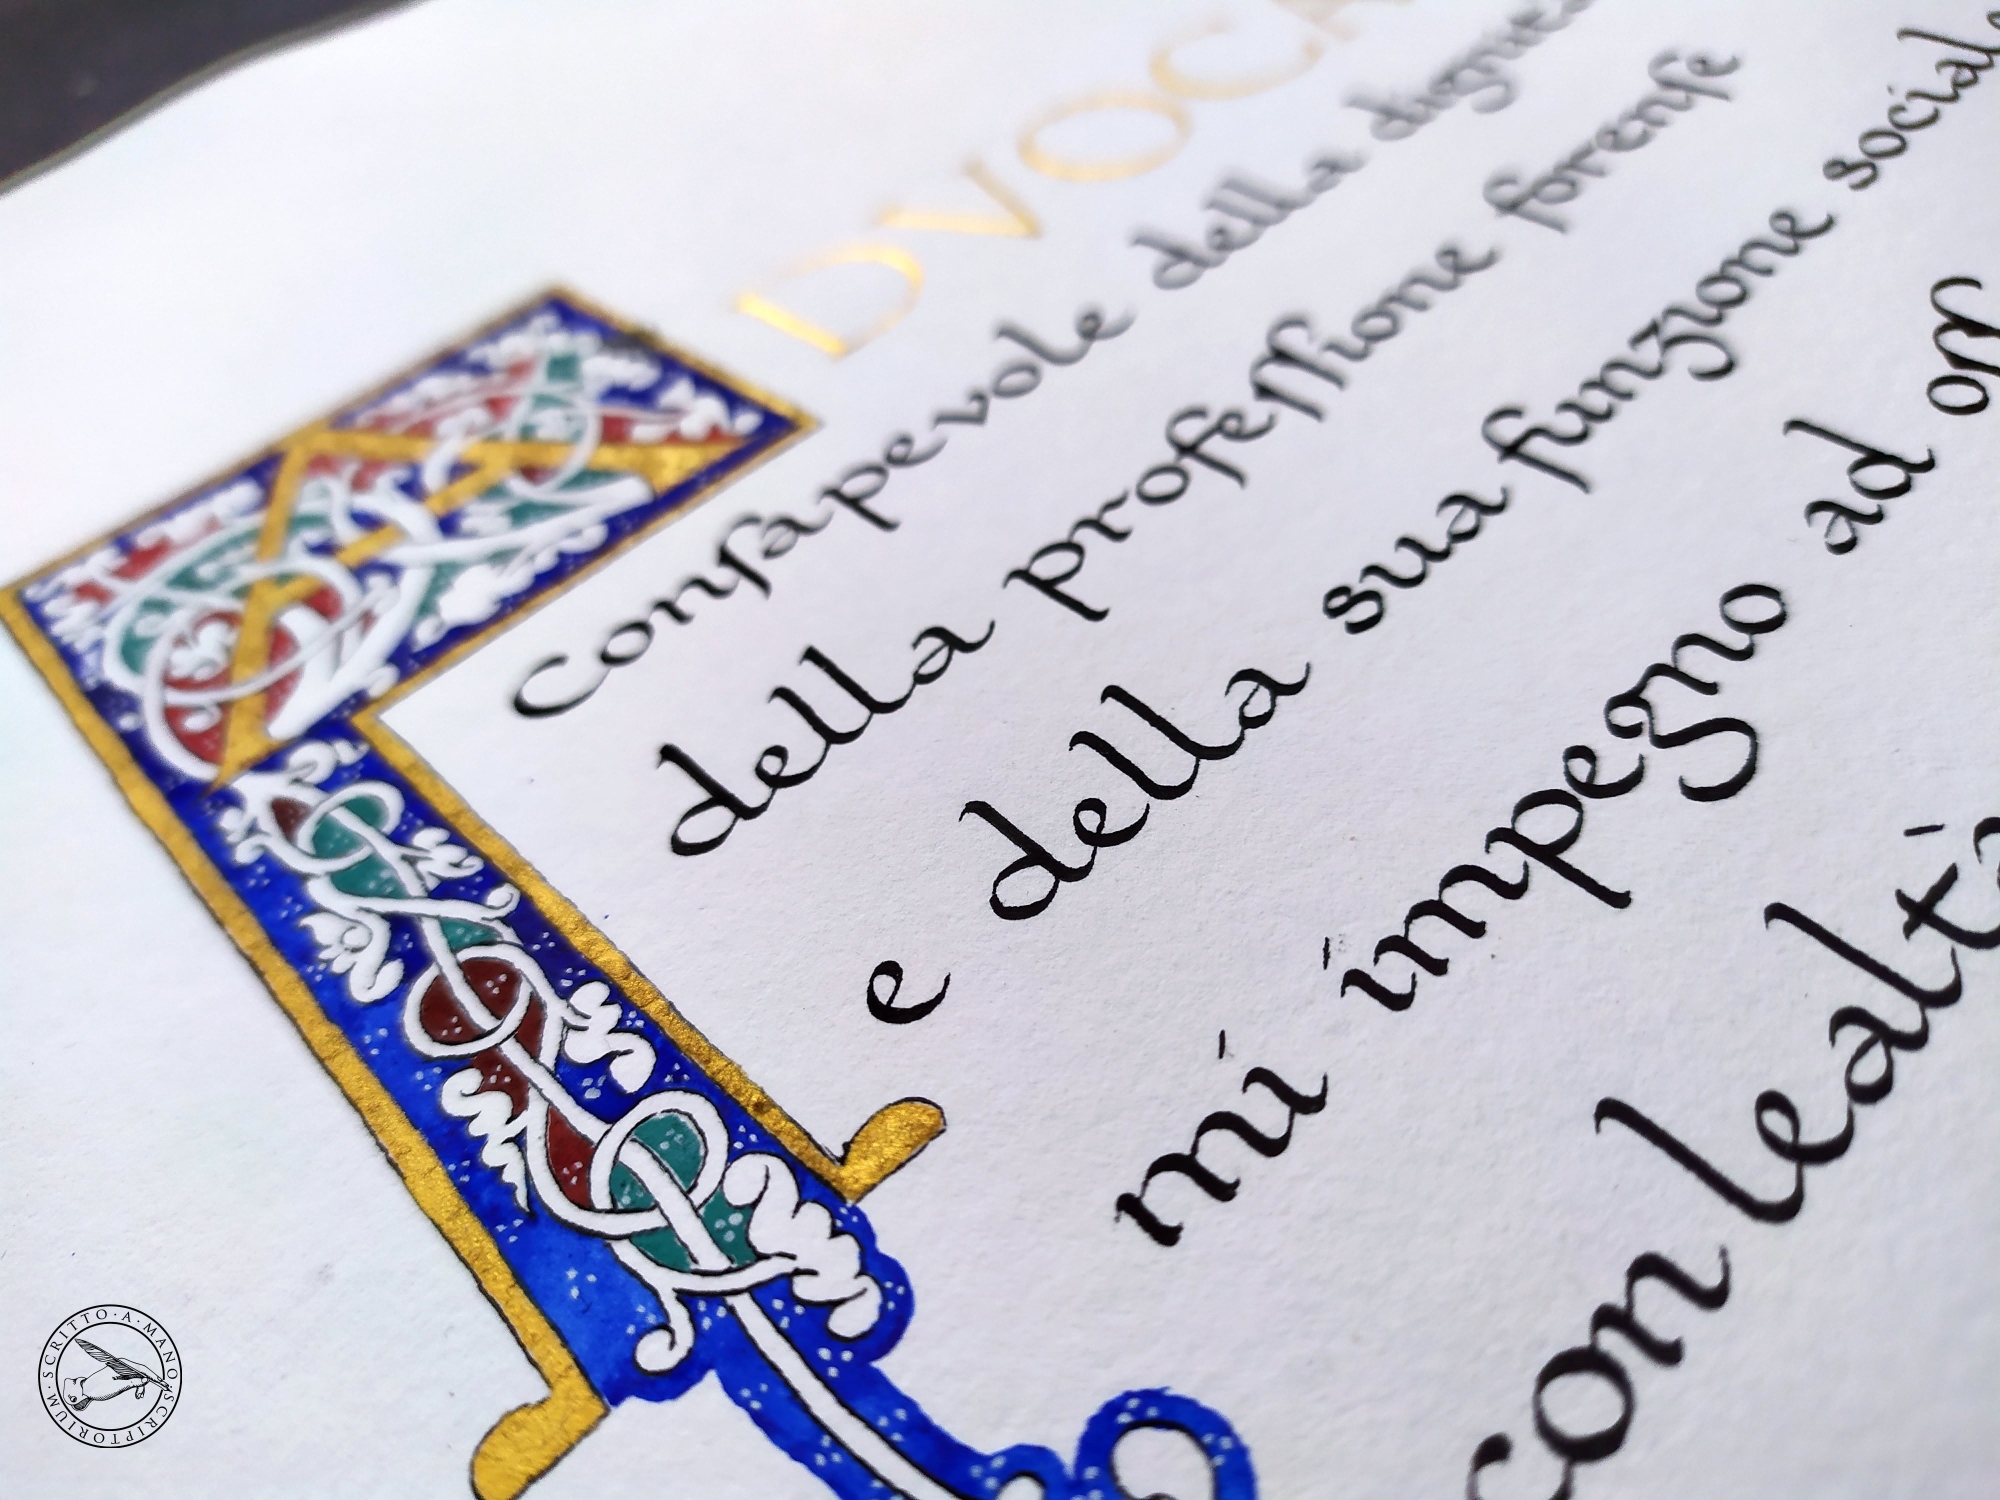 ADVOCA
Conſapevole della dignità
della profeſſione forenſe
e della sua funzione sociale
mi impegno ad
con lealtà
SCRITTO · A · MANO · SCRIPTORIUM ·